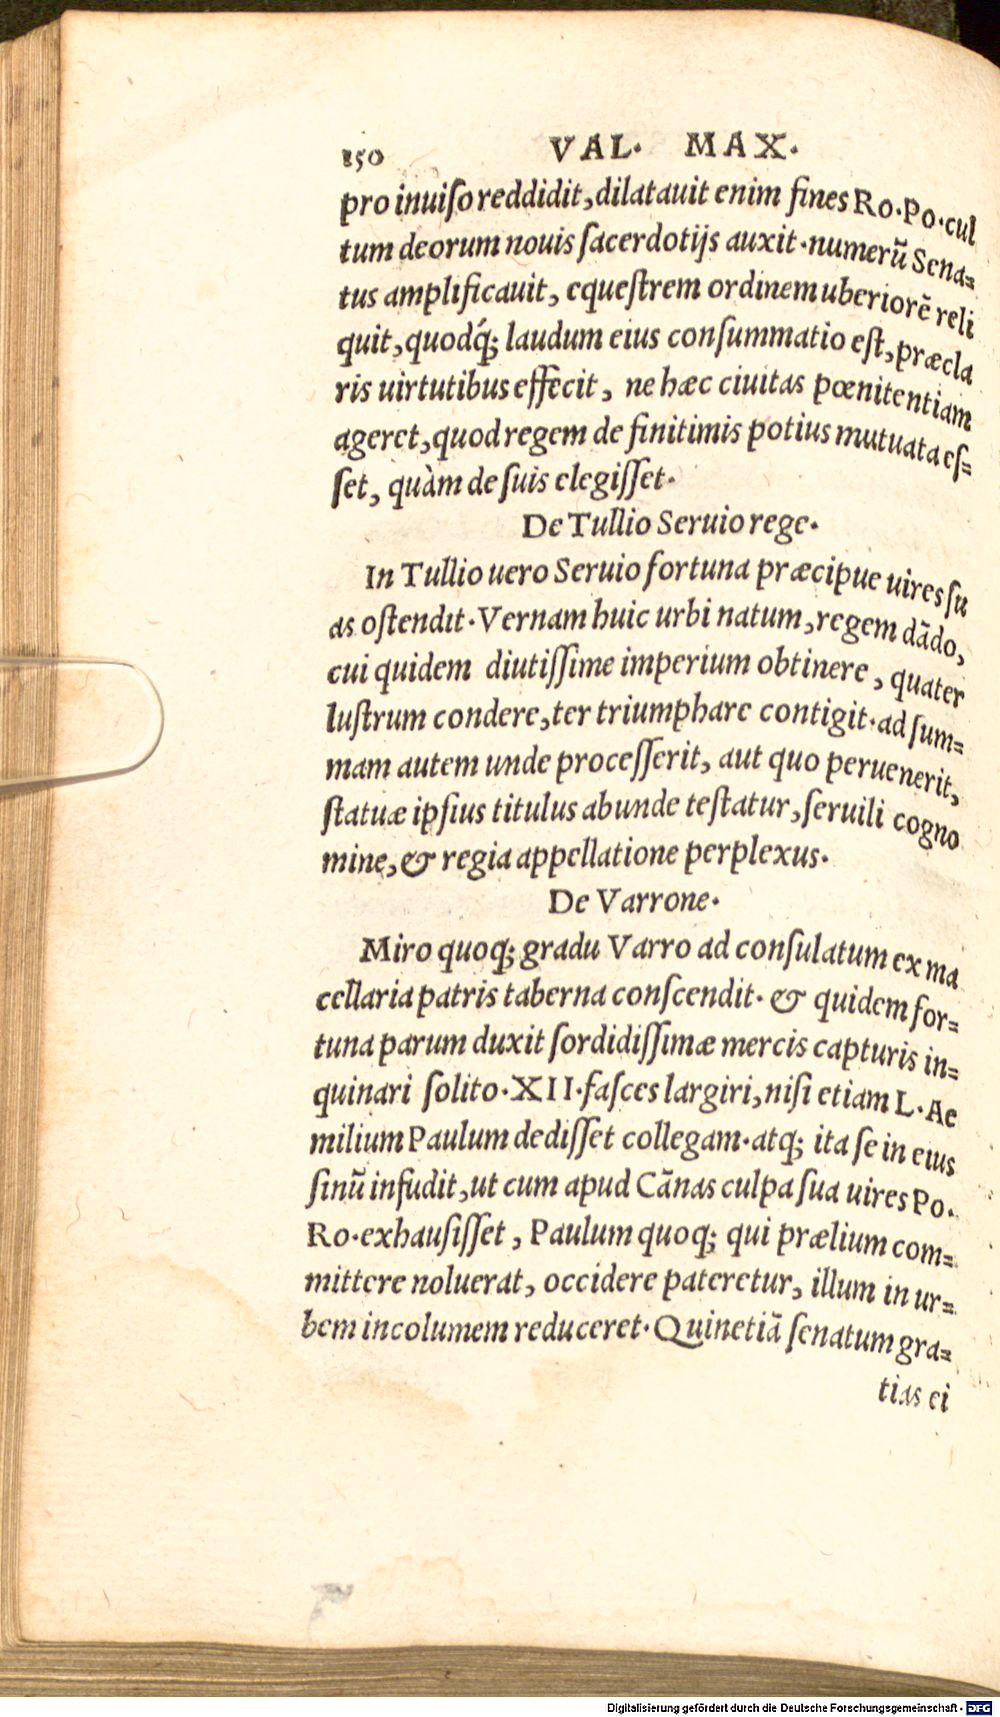 150 VAL. MAX.
pro inuiſo reddidit, dilatauit enim fines Ro. Po. cul
tum deorum nouis ſacerdotijs auxit. numerũ Sena=
tus amplificauit, equeſtrem ordinem uberiorẽ reli
quit, quodq́; laudum eius conſummatio eſt, præcla
ris uirtutibus effecit, ne hæc ciuitas pœnitentiam
ageret, quod regem de finitimis potius mutuata eſ=
ſet, quàm de ſuis elegiſſet.
De Tullio Seruio rege.
In Tullio uero Seruio fortuna præcipue uires ſu
as oſtendit. Vernam huic urbi natum, regem dãdo,
cui quidem diutiſſime imperium obtinere, quater
luſtrum condere, ter triumphare contigit. ad ſum=
mam autem unde proceſſerit, aut quo peruenerit,
ſtatuæ ipſius titulus abunde teſtatur, ſeruili cogno
mine, & regia appellatione perplexus.
De Varrone.
Miro quoq; gradu Varro ad conſulatum ex ma
cellaria patris taberna conſcendit. & quidem for=
tuna parum duxit ſordidiſſimæ mercis capturis in=
quinari ſolito. XII. faſces largiri, niſi etiam L. Ae
milium Paulum dediſſet collegam. atq; ita ſe in eius
ſinũ infudit, ut cum apud Cãnas culpa ſua uires Po.
Ro. exhauſiſſet, Paulum quoq; qui prælium com=
mittere noluerat, occidere pateretur, illum in ur=
bem incolumem reduceret. Quinetiã ſenatum gra=
tias ei
Digitalisierung gefördert durch die Deutsche Forschungsgemeinschaft - DFG